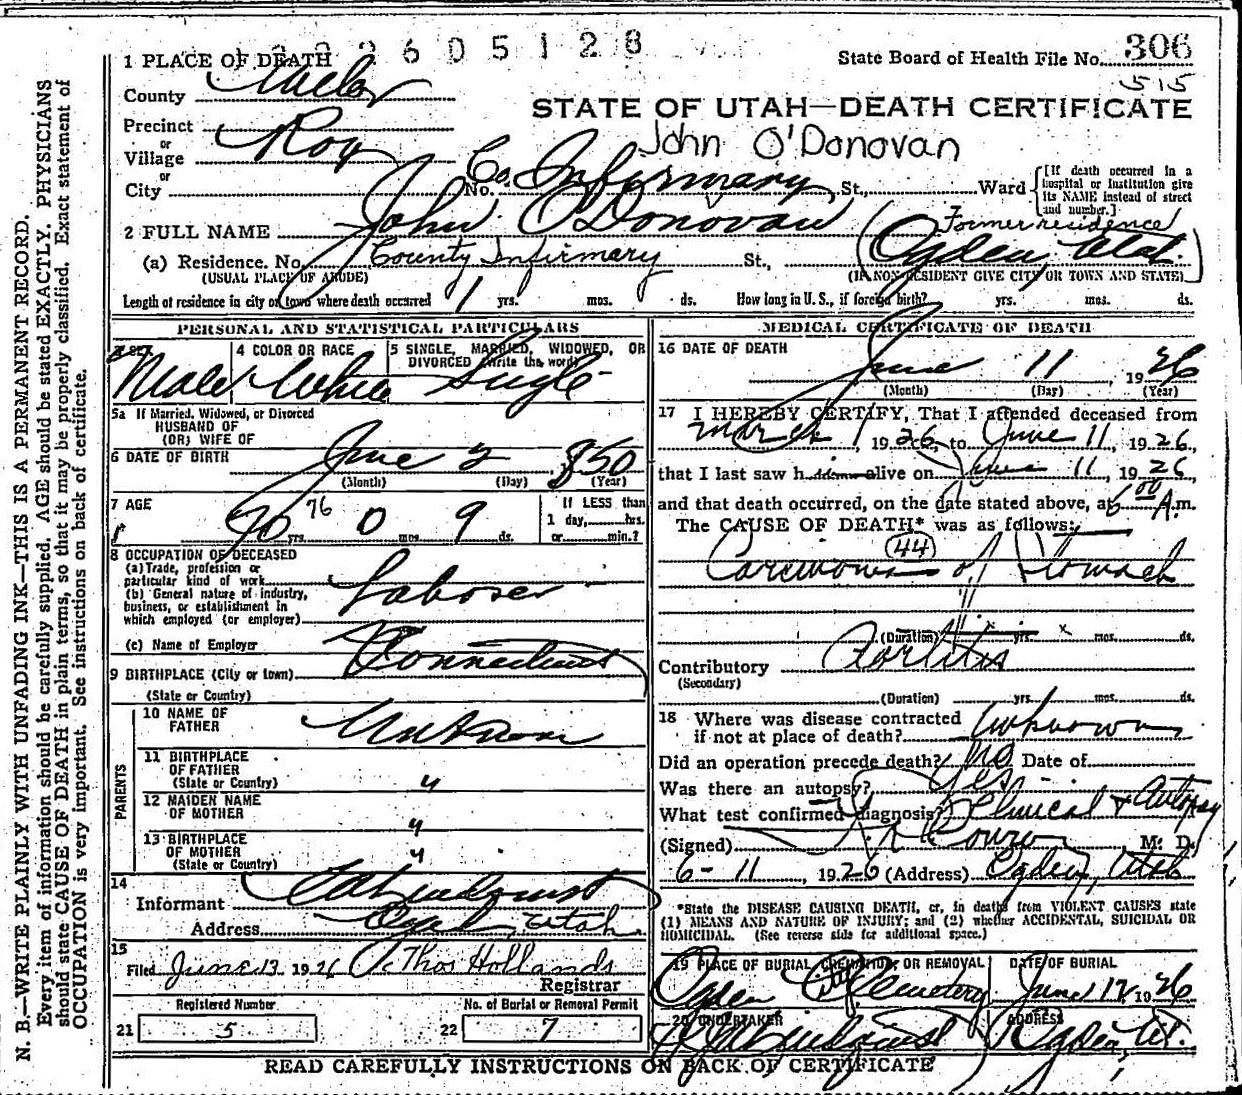 2605128
1 PLACE OF DEATH
State Board of Health File No. 306
515
County Weber
STATE OF UTAH—DEATH CERTIFICATE
Precinct
or
Village Roy
John O'Donovan
or
City No. Co. Infirmary St., Ward [If death occurred in a hospital or institution give its NAME instead of street and number.]
2 FULL NAME John O'Donovan
Former residence
(a) Residence. No. County Infirmary St., (Ogden, Utah.)
(USUAL PLACE OF ABODE) (IF NON-RESIDENT GIVE CITY OR TOWN AND STATE)
Length of residence in city or town where death occurred 1 yrs. mos. ds. How long in U. S., if foreign birth? yrs. mos. ds.
PERSONAL AND STATISTICAL PARTICULARS
3 SEX
Male
4 COLOR OR RACE
White
5 SINGLE, MARRIED, WIDOWED, OR DIVORCED (write the word)
Single
5a If Married, Widowed, or Divorced
HUSBAND OF
(OR) WIFE OF
6 DATE OF BIRTH June 2, 1850
(Month) (Day) (Year)
7 AGE 76 yrs. 0 mos. 9 ds.
If LESS than
1 day, hrs.
or min.?
8 OCCUPATION OF DECEASED
(a) Trade, profession or
particular kind of work Laborer
(b) General nature of industry,
business, or establishment in
which employed (or employer)
(c) Name of Employer
9 BIRTHPLACE (City or town) Connecticut
(State or Country)
PARENTS
10 NAME OF
FATHER Unknown
11 BIRTHPLACE
OF FATHER
(State or Country) "
12 MAIDEN NAME
OF MOTHER "
13 BIRTHPLACE
OF MOTHER
(State or Country) "
14
Informant Lindquist
Address Ogden, Utah.
15
Filed June 13 1926 Thos Hollands
Registrar
Registered Number
21 5
No. of Burial or Removal Permit
22 7
MEDICAL CERTIFICATE OF DEATH
16 DATE OF DEATH
June 11, 1926
(Month) (Day) (Year)
17 I HEREBY CERTIFY, That I attended deceased from
March 1 1926, to June 11, 1926,
that I last saw him alive on June 11, 1926
and that death occurred, on the date stated above, at 6 00 A.m.
The CAUSE OF DEATH* was as follows:
(44)
Carcinoma of Stomach
(Duration) yrs. mos. ds.
Contributory Aortitis
(Secondary)
(Duration) yrs. mos. ds.
18 Where was disease contracted
if not at place of death? Unknown
Did an operation precede death? No Date of
Was there an autopsy? Yes
What test confirmed diagnosis? Clinical & Autopsy
(Signed) Conroy M. D.
6-11, 1926 (Address) Ogden, Utah
*State the DISEASE CAUSING DEATH, or, in deaths from VIOLENT CAUSES state
(1) MEANS AND NATURE OF INJURY; and (2) whether ACCIDENTAL, SUICIDAL OR
HOMICIDAL. (See reverse side for additional space.)
19 PLACE OF BURIAL, CREMATION, OR REMOVAL
Ogden City Cemetery
DATE OF BURIAL
June 12, 1926
20 UNDERTAKER
Lindquist
ADDRESS
Ogden, Ut.
READ CAREFULLY INSTRUCTIONS ON BACK OF CERTIFICATE
N. B.—WRITE PLAINLY WITH UNFADING INK—THIS IS A PERMANENT RECORD.
Every item of information should be carefully supplied. AGE should be stated EXACTLY. PHYSICIANS
should state CAUSE OF DEATH in plain terms, so that it may be properly classified. Exact statement of
OCCUPATION is very important. See instructions on back of certificate.